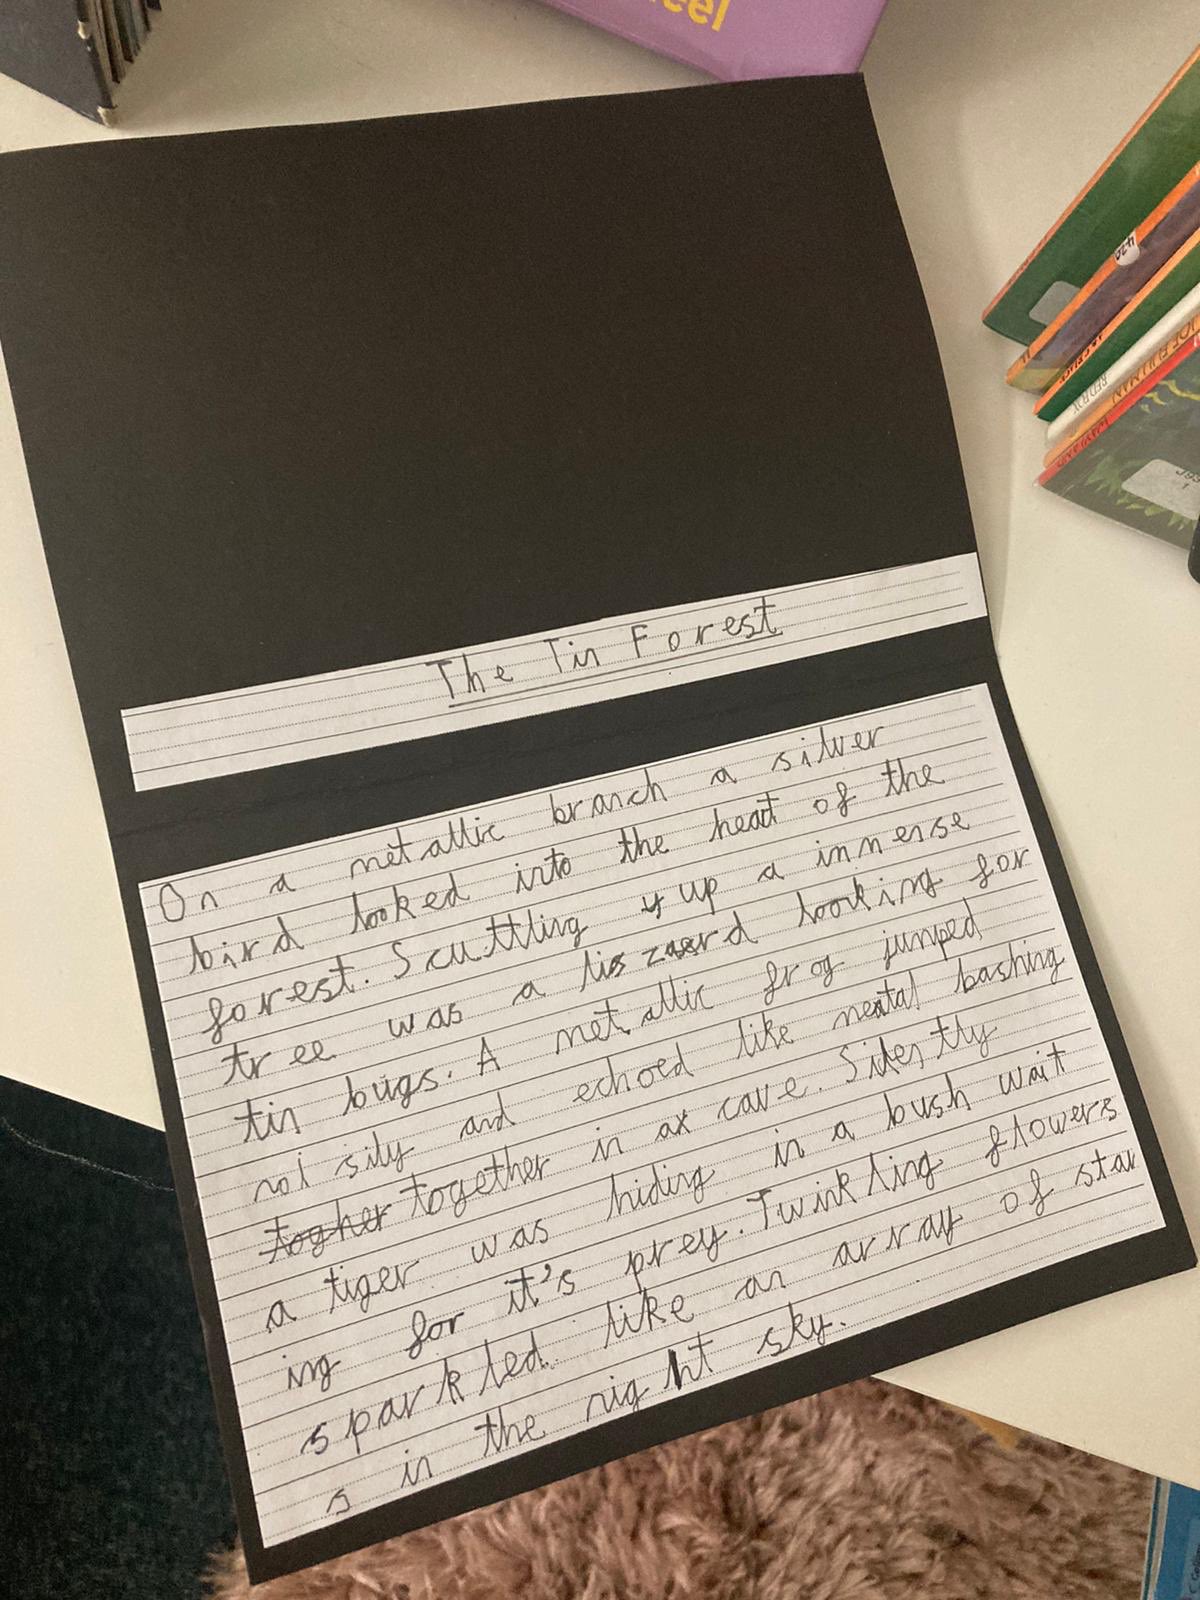 eel
The Tin Forest
On a metallic branch a silver
bird looked into the heat of the
forest. Scuttling up a inmense
tree was a liszard looking for
tin bugs. A metallic frog jumped
noisily and echoed like metal bashing
togher together in a cave. Silently
a tiger was hiding in a bush wait
ing for it's prey. Twinkling flowers
sparkled like an array of star
s in the night sky.